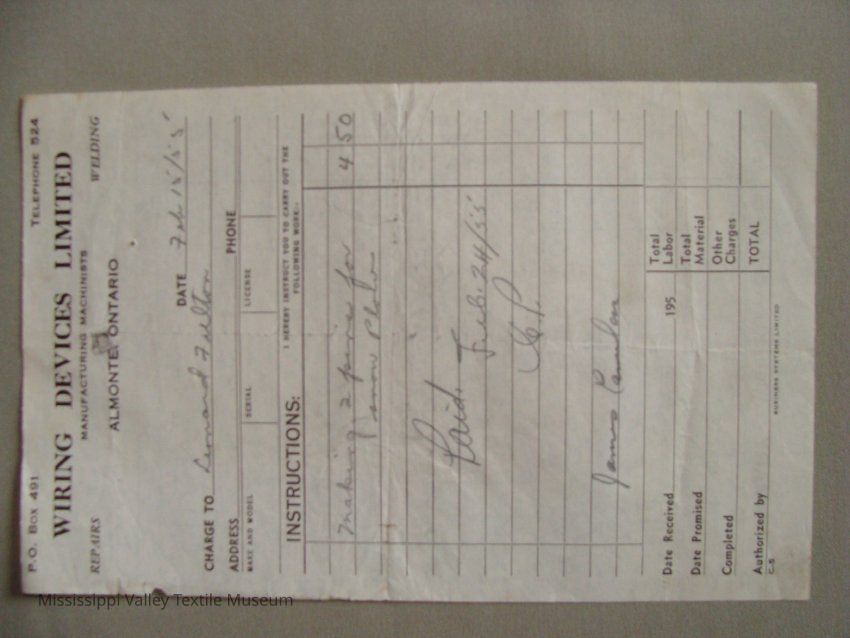 P.O. BOX 491 TELEPHONE 524
WIRING DEVICES LIMITED
MANUFACTURING MACHINISTS
REPAIRS WELDING
ALMONTE, ONTARIO
DATE Feb 15/55
CHARGE TO Leonard Fulton
ADDRESS PHONE
MAKE AND MODEL SERIAL LICENSE
INSTRUCTIONS: I HEREBY INSTRUCT YOU TO CARRY OUT THE
FOLLOWING WORK:-
Making 2 pins for 4 50
snow Plow
Paid.
Feb. 24/55
James
Date Received 195 Total Labor
Date Promised Total Material
Completed Other Charges
Authorized by TOTAL
C-5
BUSINESS SYSTEMS LIMITED
Mississippi Valley Textile Museum